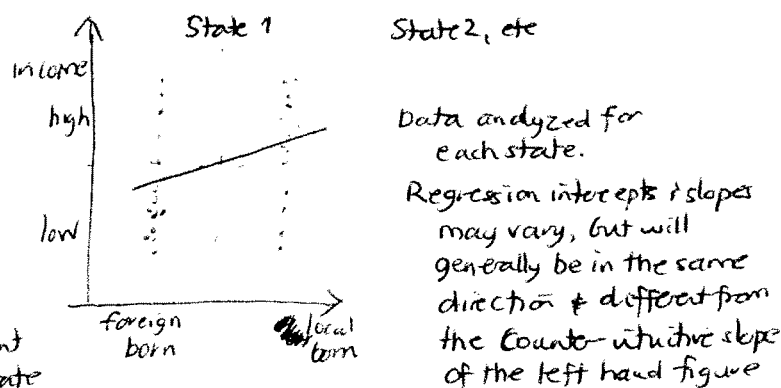 State 1
income
high
low
foreign
born
local
born
nt
ate
State 2, etc
Data analyzed for
each state.
Regression intercepts & slopes
may vary, but will
generally be in the same
direction & different from
the counter-intuitive slope
of the left hand figure